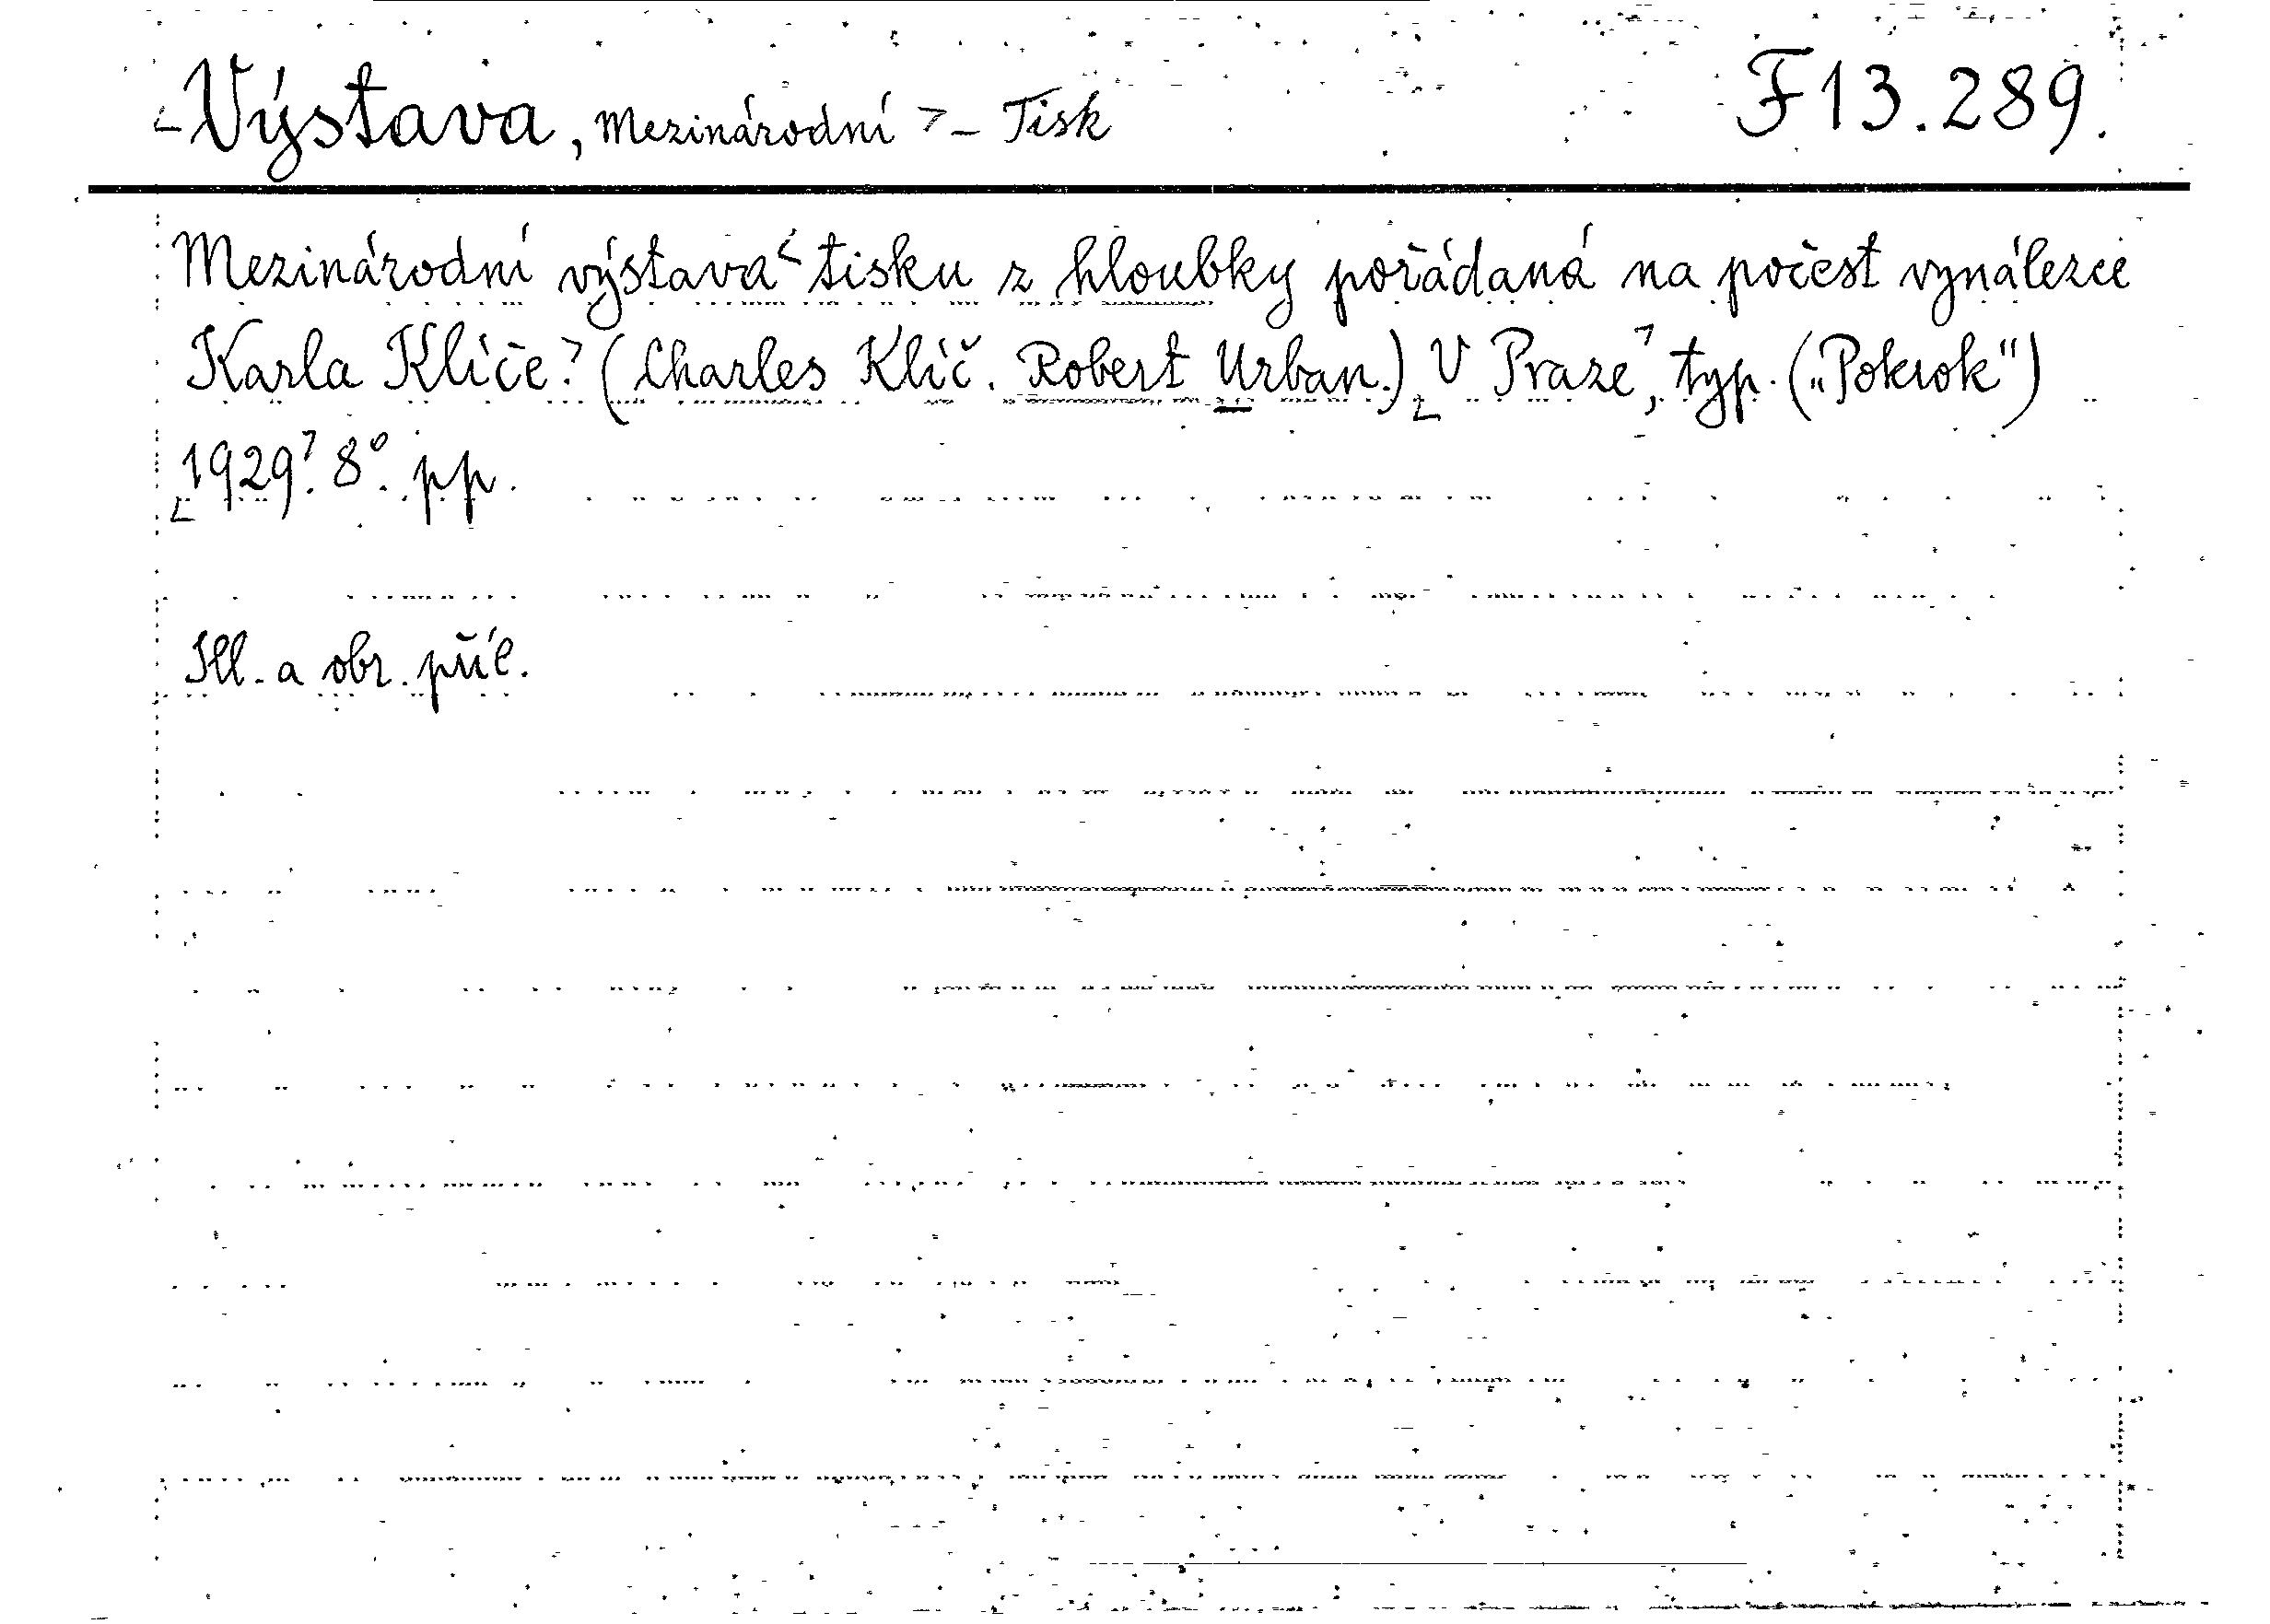 <Výstava, Mezinárodní> - Tisk F 13.289.
Mezinárodní výstava <tisku z hloubky pořádaná na počest vynálezce
Karla Klíče>. (Charles Klíč. Robert Urban.) <V Praze>, typ. („Pokrok")
<1929>. 8°. pp.
Ill. a obr. příl.